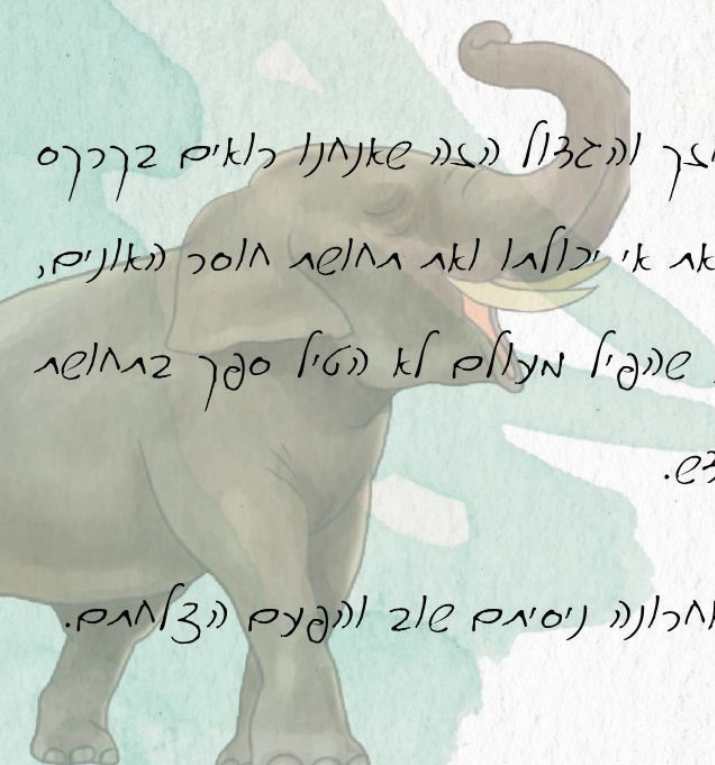 והגדול הזה שאנחנו רואים בקרקס
את אי יכולתו ואת תחושת חוסר האונים,
שהפיל מעולם לא הטיל ספק בתחושת
ניסיתם שוב והפעם הצלחתם.